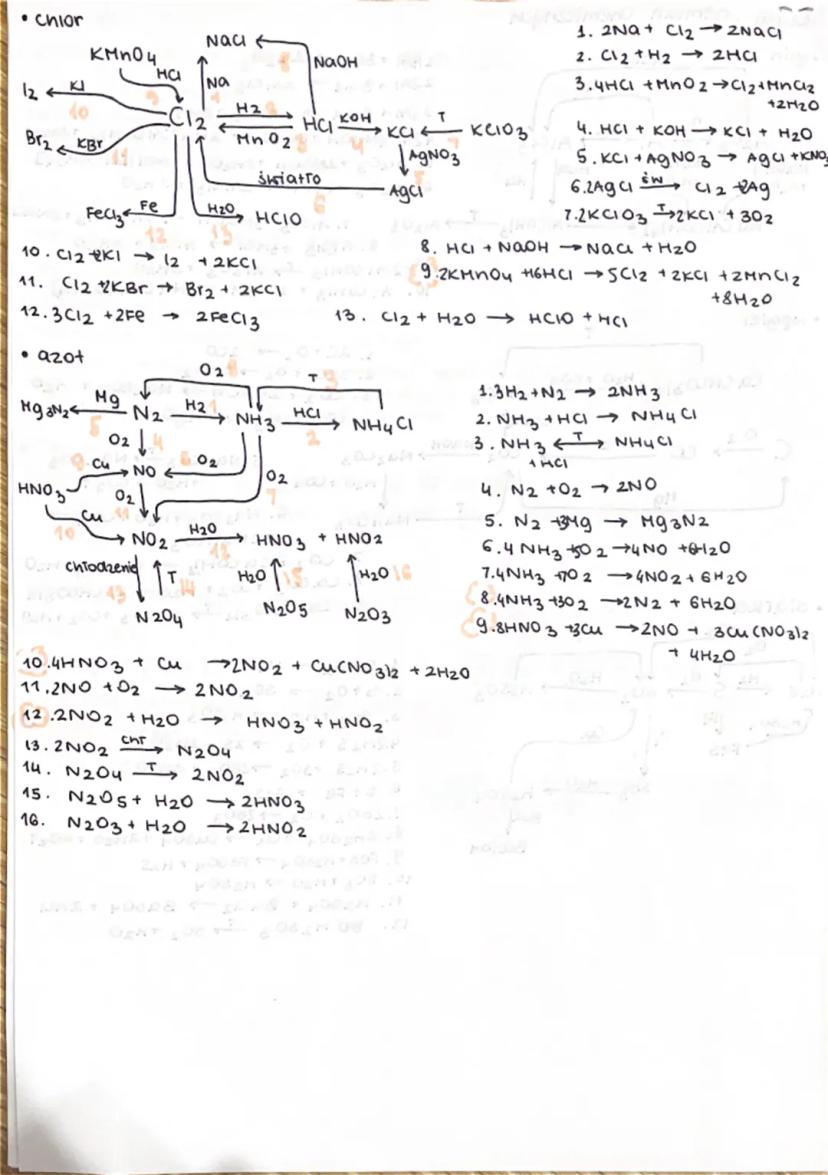 • chlor
KMnO4
HCl
NaCl
NaOH
Na
I2
KI
10
9
1
8
Cl2
H2
2
MnO2
3
HCl
KOH
4
KCl
T
7
KClO3
Br2
KBr
11
AgNO3
5
światło
6
AgCl
FeCl3
Fe
12
H2O
13
HClO
1. 2Na + Cl2 → 2NaCl
2. Cl2 + H2 → 2HCl
3. 4HCl + MnO2 → Cl2 + MnCl2
+ 2H2O
4. HCl + KOH → KCl + H2O
5. KCl + AgNO3 → AgCl + KNO3
6. 2AgCl św→ Cl2 + 2Ag
7. 2KClO3 T→ 2KCl + 3O2
8. HCl + NaOH → NaCl + H2O
9. 2KMnO4 + 16HCl → 5Cl2 + 2KCl + 2MnCl2
+ 8H2O
10. Cl2 + 2KI → I2 + 2KCl
11. Cl2 + 2KBr → Br2 + 2KCl
12. 3Cl2 + 2Fe → 2FeCl3
13. Cl2 + H2O → HClO + HCl
• azot
O2
8
T
3
Mg3N2
Mg
5
N2
H2
1
NH3
HCl
2
NH4Cl
O2
4
9
Cu
NO
6
O2
O2
7
HNO3
O2
11
Cu
10
NO2
H2O
12
HNO3 + HNO2
chłodzenie
13
T
14
H2O
15
H2O
16
N2O4
N2O5
N2O3
1. 3H2 + N2 → 2NH3
2. NH3 + HCl → NH4Cl
3. NH3 ←T→ NH4Cl
+ HCl
4. N2 + O2 → 2NO
5. N2 + 3Mg → Mg3N2
6. 4NH3 + 5O2 → 4NO + 6H2O
7. 4NH3 + 7O2 → 4NO2 + 6H2O
8. 4NH3 + 3O2 → 2N2 + 6H2O
9. 8HNO3 + 3Cu → 2NO + 3Cu(NO3)2
+ 4H2O
10. 4HNO3 + Cu → 2NO2 + Cu(NO3)2 + 2H2O
11. 2NO + O2 → 2NO2
12. 2NO2 + H2O → HNO3 + HNO2
13. 2NO2 chł→ N2O4
14. N2O4 T→ 2NO2
15. N2O5 + H2O → 2HNO3
16. N2O3 + H2O → 2HNO2